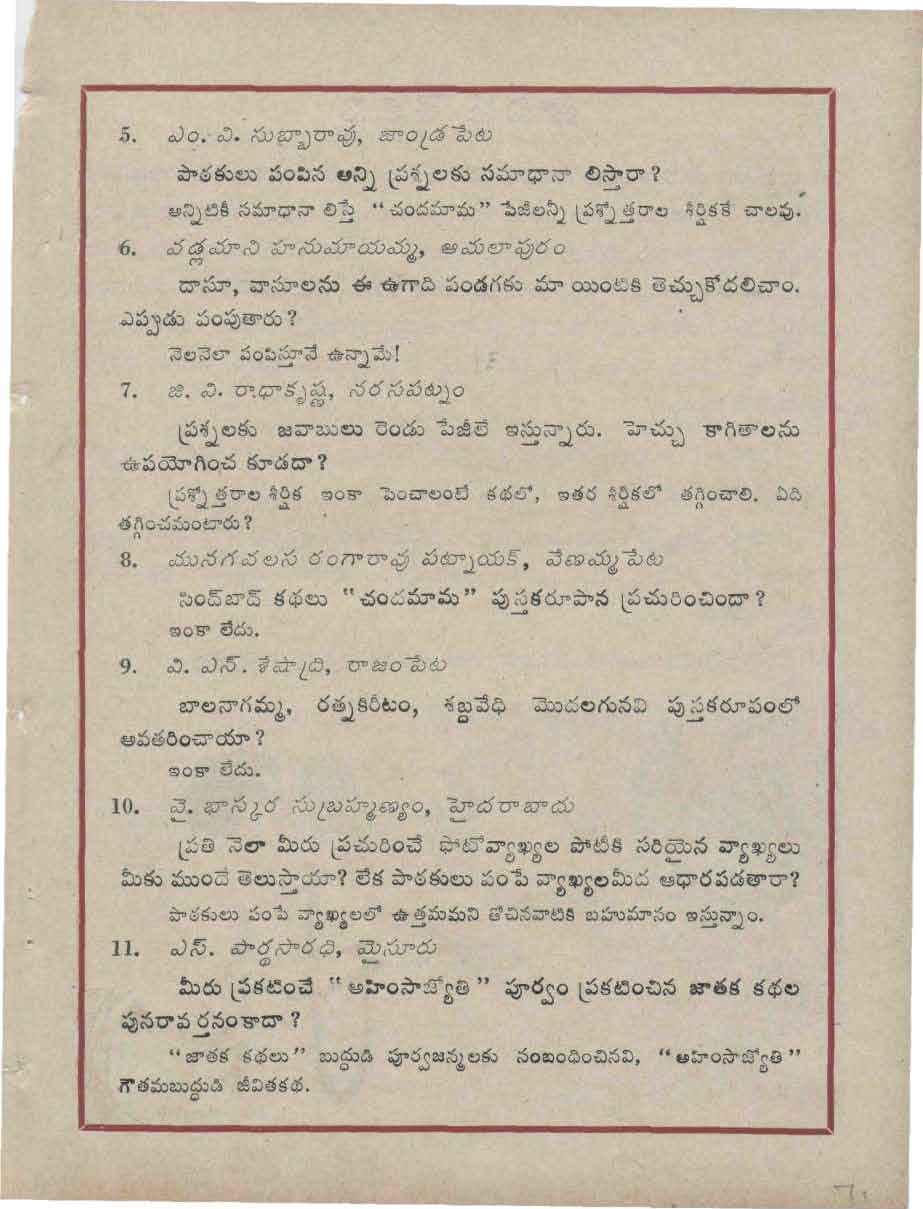 5. ఎం. వి. సుబ్బారావు, జాండ్రపేట
పాఠకులు పంపిన అన్ని ప్రశ్నలకు సమాధానా లిస్తారా?
అన్నిటికీ సమాధానా లిస్తే "చందమామ" పేజీలన్నీ ప్రశ్నోత్తరాల శీర్షికకే చాలవు.
6. వడ్లమాని హనుమాయమ్మ, అమలాపురం
దాసూ, వాసూలను ఈ ఉగాది పండగకు మా యింటికి తెచ్చుకోదలిచాం.
ఎప్పుడు పంపుతారు?
నెలనెలా పంపిస్తూనే ఉన్నామే!
7. జి. వి. రాధాకృష్ణ, నరసపట్నం
ప్రశ్నలకు జవాబులు రెండు పేజీలే ఇస్తున్నారు. హెచ్చు కాగితాలను
ఉపయోగించ కూడదా?
ప్రశ్నోత్తరాల శీర్షిక ఇంకా పెంచాలంటే కథలో, ఇతర శీర్షికలో తగ్గించాలి. ఏది
తగ్గించమంటారు?
8. మునగవలస రంగారావు పట్నాయక్, వేణమ్మపేట
సింద్‌బాద్ కథలు "చందమామ" పుస్తకరూపాన ప్రచురించిందా?
ఇంకా లేదు.
9. వి. ఎన్. శేషాద్రి, రాజంపేట
బాలనాగమ్మ, రత్నకిరీటం, శబ్దవేధి మొదలగునవి పుస్తకరూపంలో
అవతరించాయా?
ఇంకా లేదు.
10. వై. భాస్కర సుబ్రహ్మణ్యం, హైదరాబాదు
ప్రతి నెలా మీరు ప్రచురించే ఫోటోవ్యాఖ్యల పోటీకి సరియైన వ్యాఖ్యలు
మీకు ముందే తెలుస్తాయా? లేక పాఠకులు పంపే వ్యాఖ్యలమీద ఆధారపడతారా?
పాఠకులు పంపే వ్యాఖ్యలలో ఉత్తమమని తోచినవాటికి బహుమానం ఇస్తున్నాం.
11. ఎస్. పార్థసారధి, మైసూరు
మీరు ప్రకటించే "అహింసాజ్యోతి" పూర్వం ప్రకటించిన జాతక కథల
పునరావర్తనంకాదా?
"జాతక కథలు" బుద్ధుడి పూర్వజన్మలకు సంబంధించినవి, "అహింసాజ్యోతి"
గౌతమబుద్ధుడి జీవితకథ.